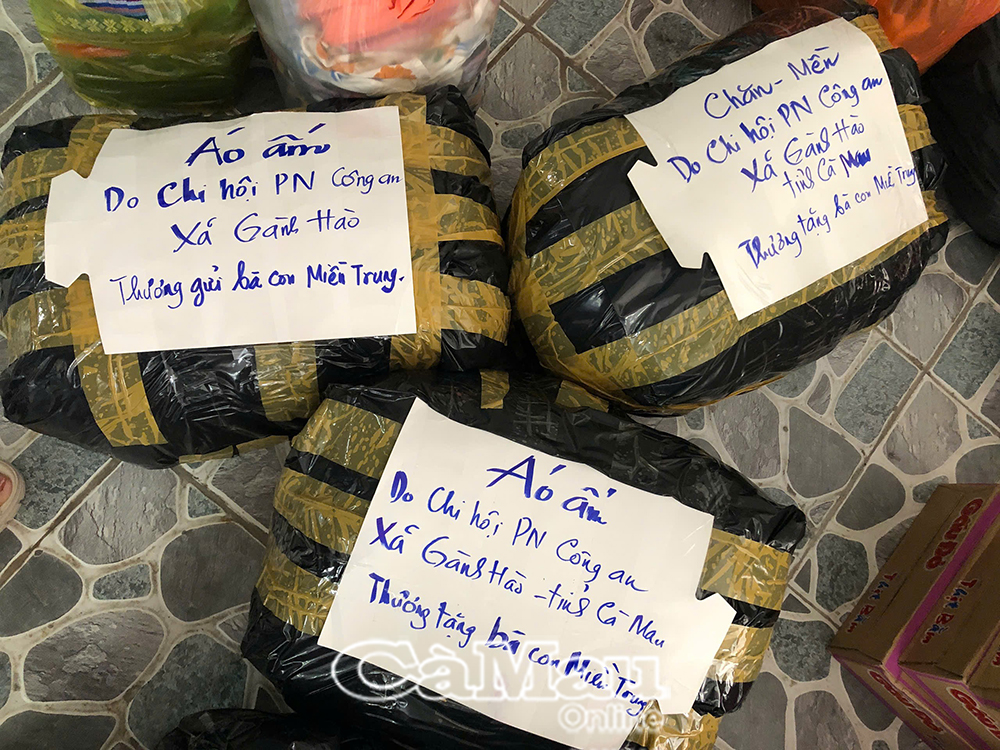 Áo ấm
Do Chi hội PN Công an
Xã Gành Hào
Thương gửi bà con Miền Trung.
Chăn - Mền
Do Chi hội PN Công an
Xã Gành Hào
tỉnh Cà Mau
Thương tặng bà con Miền Trung
Áo ấm
Do Chi hội PN Công an
Xã Gành Hào - tỉnh Cà Mau
Thương tặng bà con Miền Trung
CàMau
Online
Gấu Đỏ
Thịt Bằm